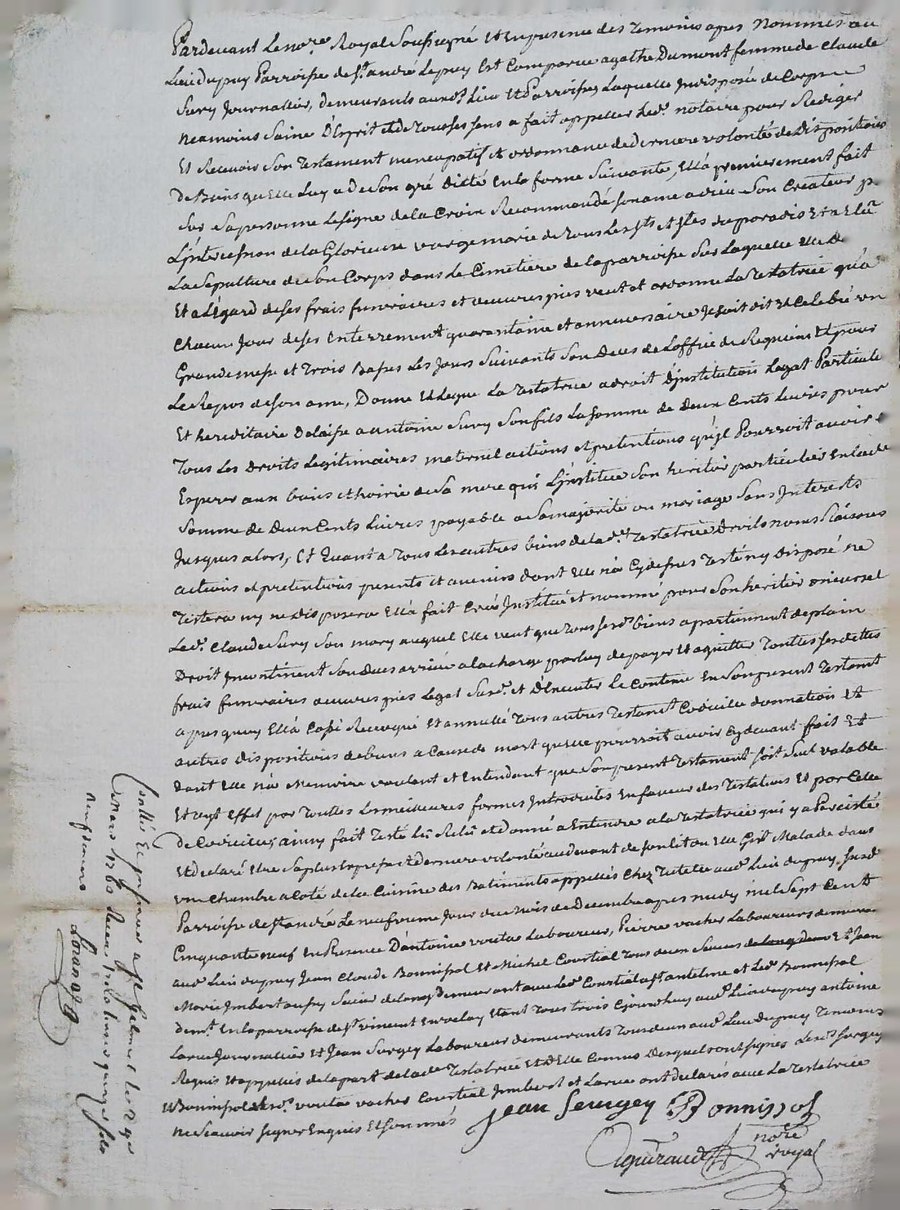 Pardevant Le nore Royal Soussigné Et En presence des Temoins apres Nommés au
Lieu dupuy Parroisse de St andré Le puy Est Comparue agathe Dumont femme de Claude
Sury Journallier, demeurants aud. Lieu Et Parroisse, Laquelle Indisposée de Corps
neamoins Saine D'Esprit et de Tous ses sens a fait appeller Led. notaire pour Rediger
Et Recevoir Son Testament nuncupatif et ordonnance de derniere volonté et Dispositions
De Biens quElle Luy a de Son gré dicté En la forme Suivante, Ella premierement fait
Sur Sa personne Le Signe de la Croix Recommandé Son ame a dieu Son Createur p.
L'intercession de la Glorieuse vierge marie de Tous Les Sts et Stes du paradis Et a Elu
La Sepulture de Son Corps dans Le Cimetiere de la parroisse Sur Laquelle
Et a L'Egard de Ses frais funeraires et oeuvres pies veut et ordonne La Testatrice qu'a
Chacun Jour de Ses Enterrement quarantaine et anniversaire Il Soit dit et Celebré un
Grande messe et Trois Basses Les Jours Suivants Son Deces de L'office de Requiem Et pour
Le Repos de Son ame, Donne et Legue La Testatrice a droit D'institution Legat Particule
Et hereditaire Delaisse a antoine Sury Son fils La Somme de Deux Cents Livres pour
Tous Les Droits Legitimaires maternel actions et pretentions qu'Il Pourroit avoir
Esperer aux biens et hoirie de Sa mere qui L'institue Son heritier particulier En lade
Somme de Deux Cents Livres payable a Sa majorité ou mariage Sans Interests
Jusques alors, Et Quant a Tous Les autres biens de lade Testatrice Droits noms Raisons
actions et pretentions presents et avenirs dont Elle n'a Cy dessus Testé ny disposé ne
Testera ny ne disposera Ella fait Créé Institué et nommé pour Son heritier universel
Led. Claude Sury Son mary auquel Elle veut que Tous Sesd. biens apartiennent de plain
Droit Incontinent Son Deces arrivé a la charge par luy de payer Et aquitter Touttes Ses dettes
frais funeraires oeuvres pies Legat Susd. et D'Executer Le Contenu En Son present Testamt
apres quoy Ella Cassé Revoqué Et annullé Tous autres Testamts Codicille donnation Et
autres dispositions de biens a Cause de mort quelle pourroit avoir Cy devant fait Et
dont Elle n'a Memoire voulant et Entendant que Son present Testament Soit Seul valable
Et Ayt Effet par Touttes Les meilleures formes Introduites En faveur des Testateurs Et par Celle
De Codicille, ainsy fait Testé Lû Relu et donné a Entendre a la Testatrice qui y a Percisté
Et declaré Etre Sa plus Expresse et derniere volonté au devant de Son lit ou Elle Git Malade dans
une Chambre a Coté de la Cuisine des Batiments appellés Chez Tatete aud. Lieu dupuy, Susd.
Parroisse de St andré Le neufvieme Jour du Mois de Decembre apres midy mil Sept Cent
Cinquante neuf En Presence D'antoine voutat Laboureur, Pierre vacher Laboureur demeur.
aud. Lieu dupuy Jean Claude Bonnissol Et Michel Courtial Tous deux Scieurs de Long Et Jean
Marie Imbert aussy Scieur de Long demeurant Led. Courtial a St antelme et Led. Bonnissol
demt. En la parroisse de St vincent En velay Etant Tous Trois Ce Jourdhuy aud. Lieu dupuy antoine
Larue Journallier Et Jean Sergey Laboureur demeurants Tous deux aud. Lieu dupuy Temoins
Requis Et appellés de la part de lade Testatrice Et d'Elle Connus Desquels ont Signés Lesd. Sergey
Et Bonnissol voutat vacher Courtial Imbert et Larue ont declarés avec La Testatrice
ne Scavoir Signer Enquis Et Sommés
Jean Sergey Bonnissol
nore royal
Conllé Et
Mars 1760 Recu